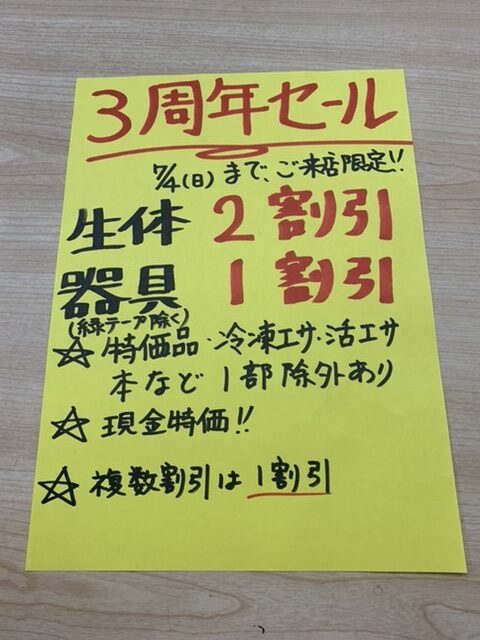 3周年セール
7/4(日)まで、ご来店限定!!
生体 2割引
器具 1割引
(緑テープ除く)
☆ 特価品・冷凍エサ・活エサ
本など1部除外あり
☆ 現金特価!!
☆ 複数割引は1割引